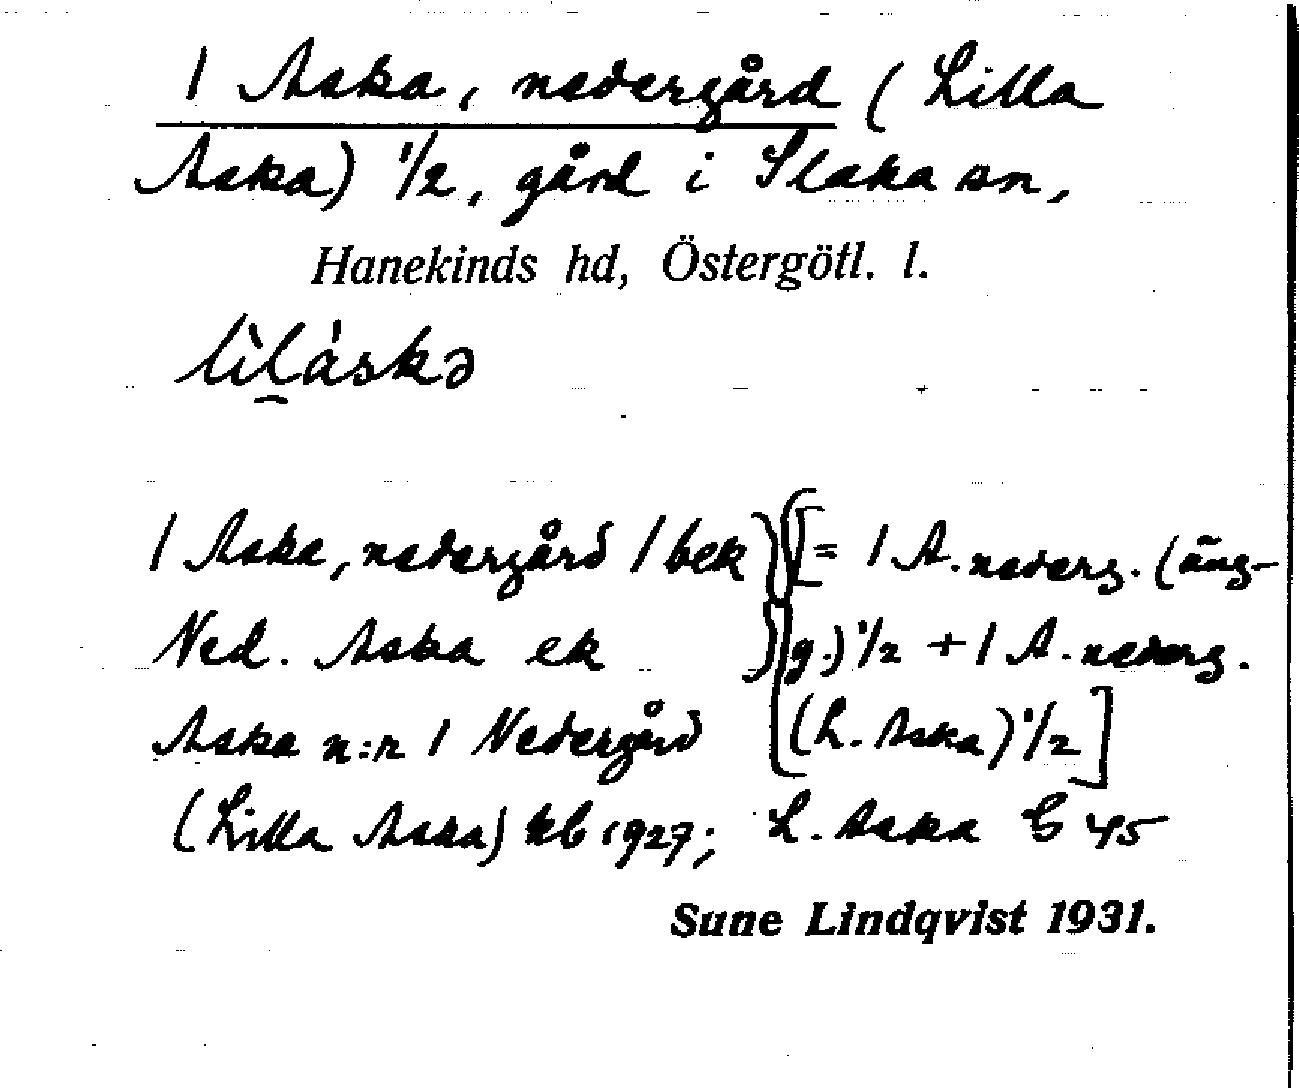 1 Aska, nedergård (Lilla
Aska) 1/2, gård i Slaka sn,
Hanekinds hd, Östergötl. l.
lìláskə
1 Aska, nedergård 1 bek [= 1 A. nederg. (äng-
Ned. Aska ek g.) 1/2 + 1 A. nederg.
Aska n:r 1 Nedergård (L. Aska) 1/2]
(Lilla Aska) kb 1927; L. Aska G 45
Sune Lindqvist 1931.